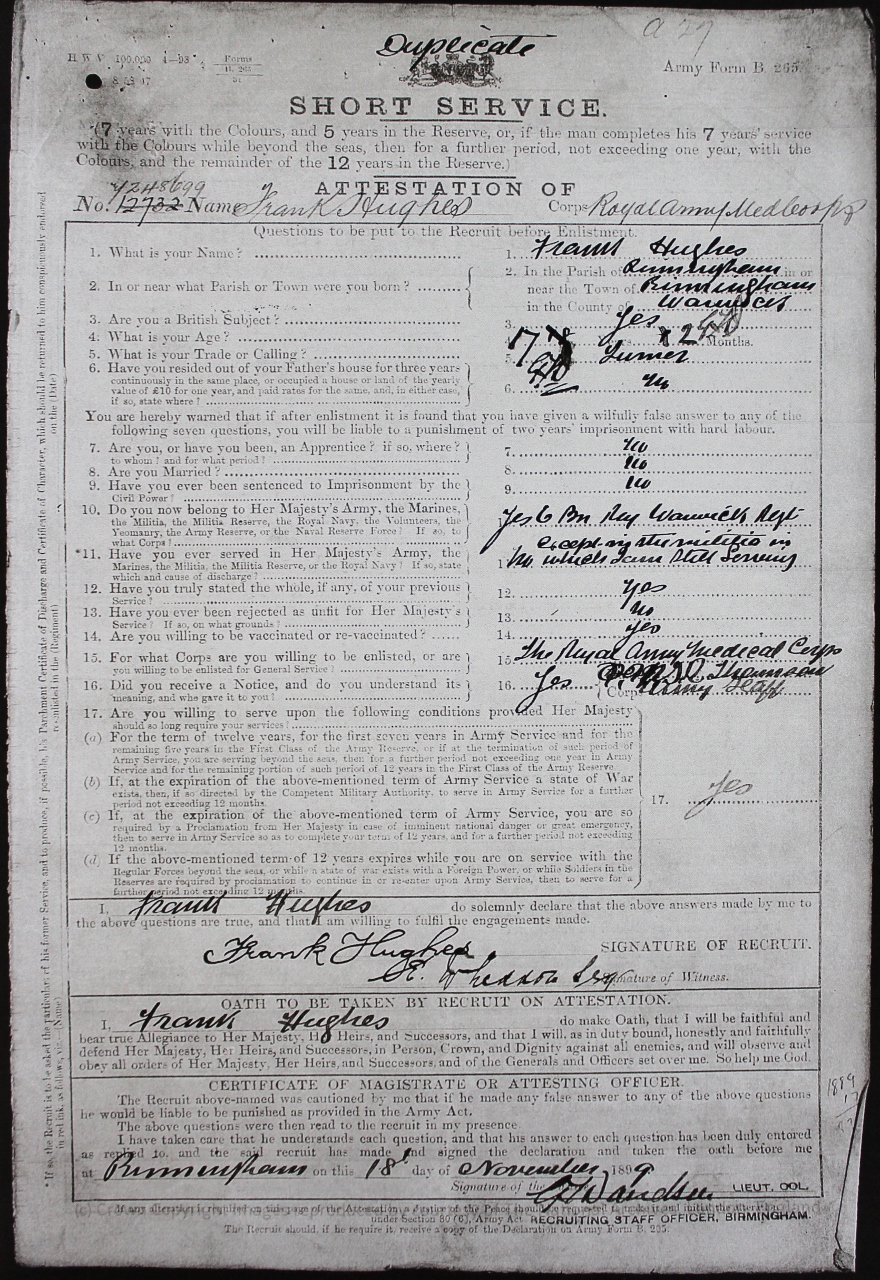 Duplicate
a 27
H W V 100,000 4—98 Forms
B. 265
Army Form B. 265.
SHORT SERVICE.
(7 years with the Colours, and 5 years in the Reserve, or, if the man completes his 7 years' service
with the Colours while beyond the seas, then for a further period, not exceeding one year, with the
Colours, and the remainder of the 12 years in the Reserve.)
ATTESTATION OF
No. 12732 Name Frank Hughes Corps Royal Army Med Corps
Questions to be put to the Recruit before Enlistment.
1. What is your Name? 1. Frank Hughes
2. In or near what Parish or Town were you born? 2. In the Parish of Birmingham in or
near the Town of Birmingham
in the County of Warwick
3. Are you a British Subject? 3. Yes
4. What is your Age? Months.
5. What is your Trade or Calling? 5. Turner
6. Have you resided out of your Father's house for three years
continuously in the same place, or occupied a house or land of the yearly
value of £10 for one year, and paid rates for the same, and, in either case,
if so, state where? 6. No
You are hereby warned that if after enlistment it is found that you have given a wilfully false answer to any of the
following seven questions, you will be liable to a punishment of two years' imprisonment with hard labour.
7. Are you, or have you been, an Apprentice? if so, where?
to whom? and for what period? 7. No
8. Are you Married? 8. No
9. Have you ever been sentenced to Imprisonment by the
Civil Power? 9. No
10. Do you now belong to Her Majesty's Army, the Marines,
the Militia, the Militia Reserve, the Royal Navy, the Volunteers, the
Yeomanry, the Army Reserve, or the Naval Reserve Force? If so, to
what Corps? Yes 6 Bn Roy Warwick Regt
*11. Have you ever served in Her Majesty's Army, the
Marines, the Militia, the Militia Reserve, or the Royal Navy? If so, state
which and cause of discharge? No except in the militia in
which I am still serving
12. Have you truly stated the whole, if any, of your previous
Service? 12. Yes
13. Have you ever been rejected as unfit for Her Majesty's
Service? If so, on what grounds? 13. No
14. Are you willing to be vaccinated or re-vaccinated? 14. Yes
15. For what Corps are you willing to be enlisted, or are
you willing to be enlisted for General Service? 15. The Royal Army Medical Corps
16. Did you receive a Notice, and do you understand its
meaning, and who gave it to you? 16. Yes Thompson
Corps Army Staff
17. Are you willing to serve upon the following conditions provided Her Majesty
should so long require your services?
(a) For the term of twelve years, for the first seven years in Army Service and for the
remaining five years in the First Class of the Army Reserve, or if at the termination of such period of
Army Service, you are serving beyond the seas, then for a further period not exceeding one year in Army
Service and for the remaining portion of such period of 12 years in the First Class of the Army Reserve
(b) If, at the expiration of the above-mentioned term of Army Service a state of War
exists, then, if so directed by the Competent Military Authority, to serve in Army Service for a further
period not exceeding 12 months.
17. Yes
(c) If, at the expiration of the above-mentioned term of Army Service, you are so
required by a Proclamation from Her Majesty in case of imminent national danger or great emergency,
then to serve in Army Service so as to complete your term of 12 years, and for a further period not exceeding
12 months.
(d) If the above-mentioned term of 12 years expires while you are on service with the
Regular Forces beyond the seas, or while a state of war exists with a Foreign Power, or while Soldiers in the
Reserves are required by proclamation to continue in or re-enter upon Army Service, then to serve for a
further period not exceeding 12 months.
I, Frank Hughes do solemnly declare that the above answers made by me to
the above questions are true, and that I am willing to fulfil the engagements made.
Frank Hughes SIGNATURE OF RECRUIT.
Signature of Witness.
OATH TO BE TAKEN BY RECRUIT ON ATTESTATION.
I, Frank Hughes do make Oath, that I will be faithful and
bear true Allegiance to Her Majesty, Her Heirs, and Successors, and that I will, as in duty bound, honestly and faithfully
defend Her Majesty, Her Heirs, and Successors, in Person, Crown, and Dignity against all enemies, and will observe and
obey all orders of Her Majesty, Her Heirs, and Successors, and of the Generals and Officers set over me. So help me God.
CERTIFICATE OF MAGISTRATE OR ATTESTING OFFICER.
The Recruit above-named was cautioned by me that if he made any false answer to any of the above questions
he would be liable to be punished as provided in the Army Act.
The above questions were then read to the recruit in my presence.
I have taken care that he understands each question, and that his answer to each question has been duly entered
as replied to, and the said recruit has made and signed the declaration and taken the oath before me
at Birmingham on this 18 day of November 1899
Signature of the
LIEUT. COL.
RECRUITING STAFF OFFICER, BIRMINGHAM.
If any alteration is required on this page of the Attestation, a Justice of the Peace should be requested to make it and initial the alteration
under Section 80 (6), Army Act.
The Recruit should, if he require it, receive a copy of the Declaration on Army Form B. 265.